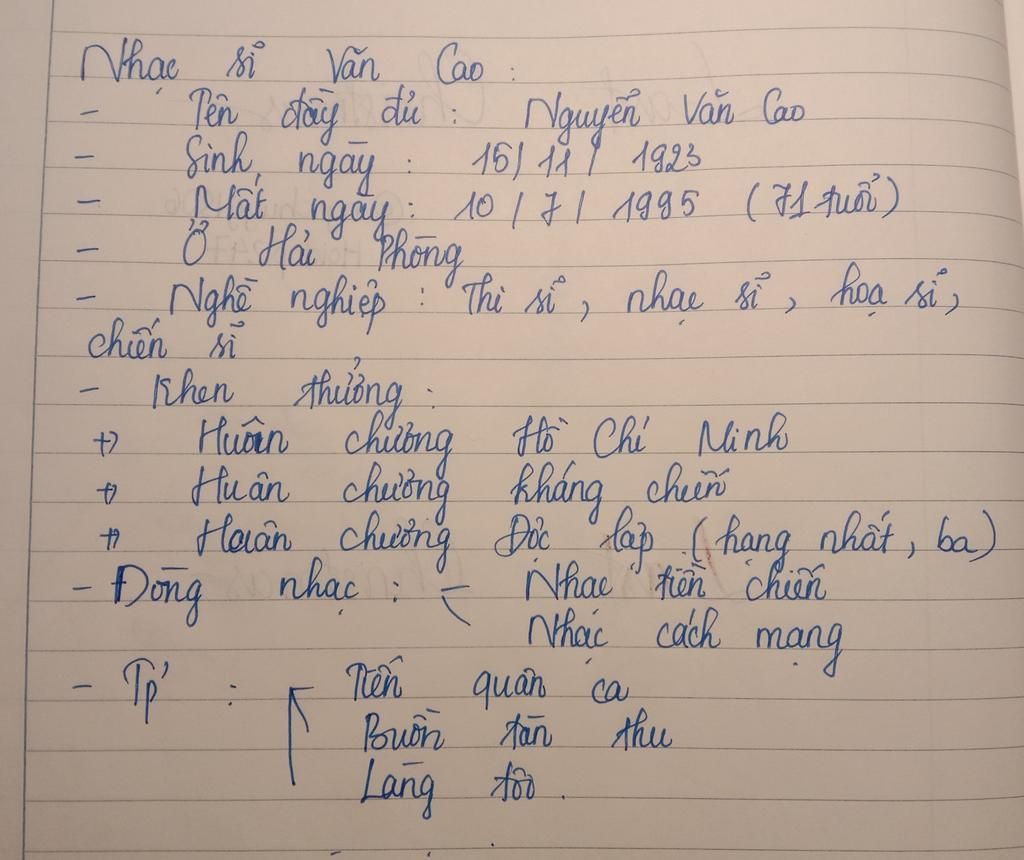 Nhạc sĩ Văn Cao :
- Tên đầy đủ : Nguyễn Văn Cao
- Sinh ngày : 15/11/ 1923
- Mất ngày : 10/7/ 1995 (71 tuổi)
- Ở Hải Phòng
- Nghề nghiệp : Thi sĩ, nhạc sĩ, hoạ sĩ,
chiến sĩ
- Khen thưởng :
+) Huân chương Hồ Chí Minh
+) Huân chương kháng chiến
+) Huân chương Độc lập (hạng nhất, ba)
- Dòng nhạc : - Nhạc tiền chiến
Nhạc cách mạng
- Tp' : Tiến quân ca
Buồn tàn thu
Làng tôi .